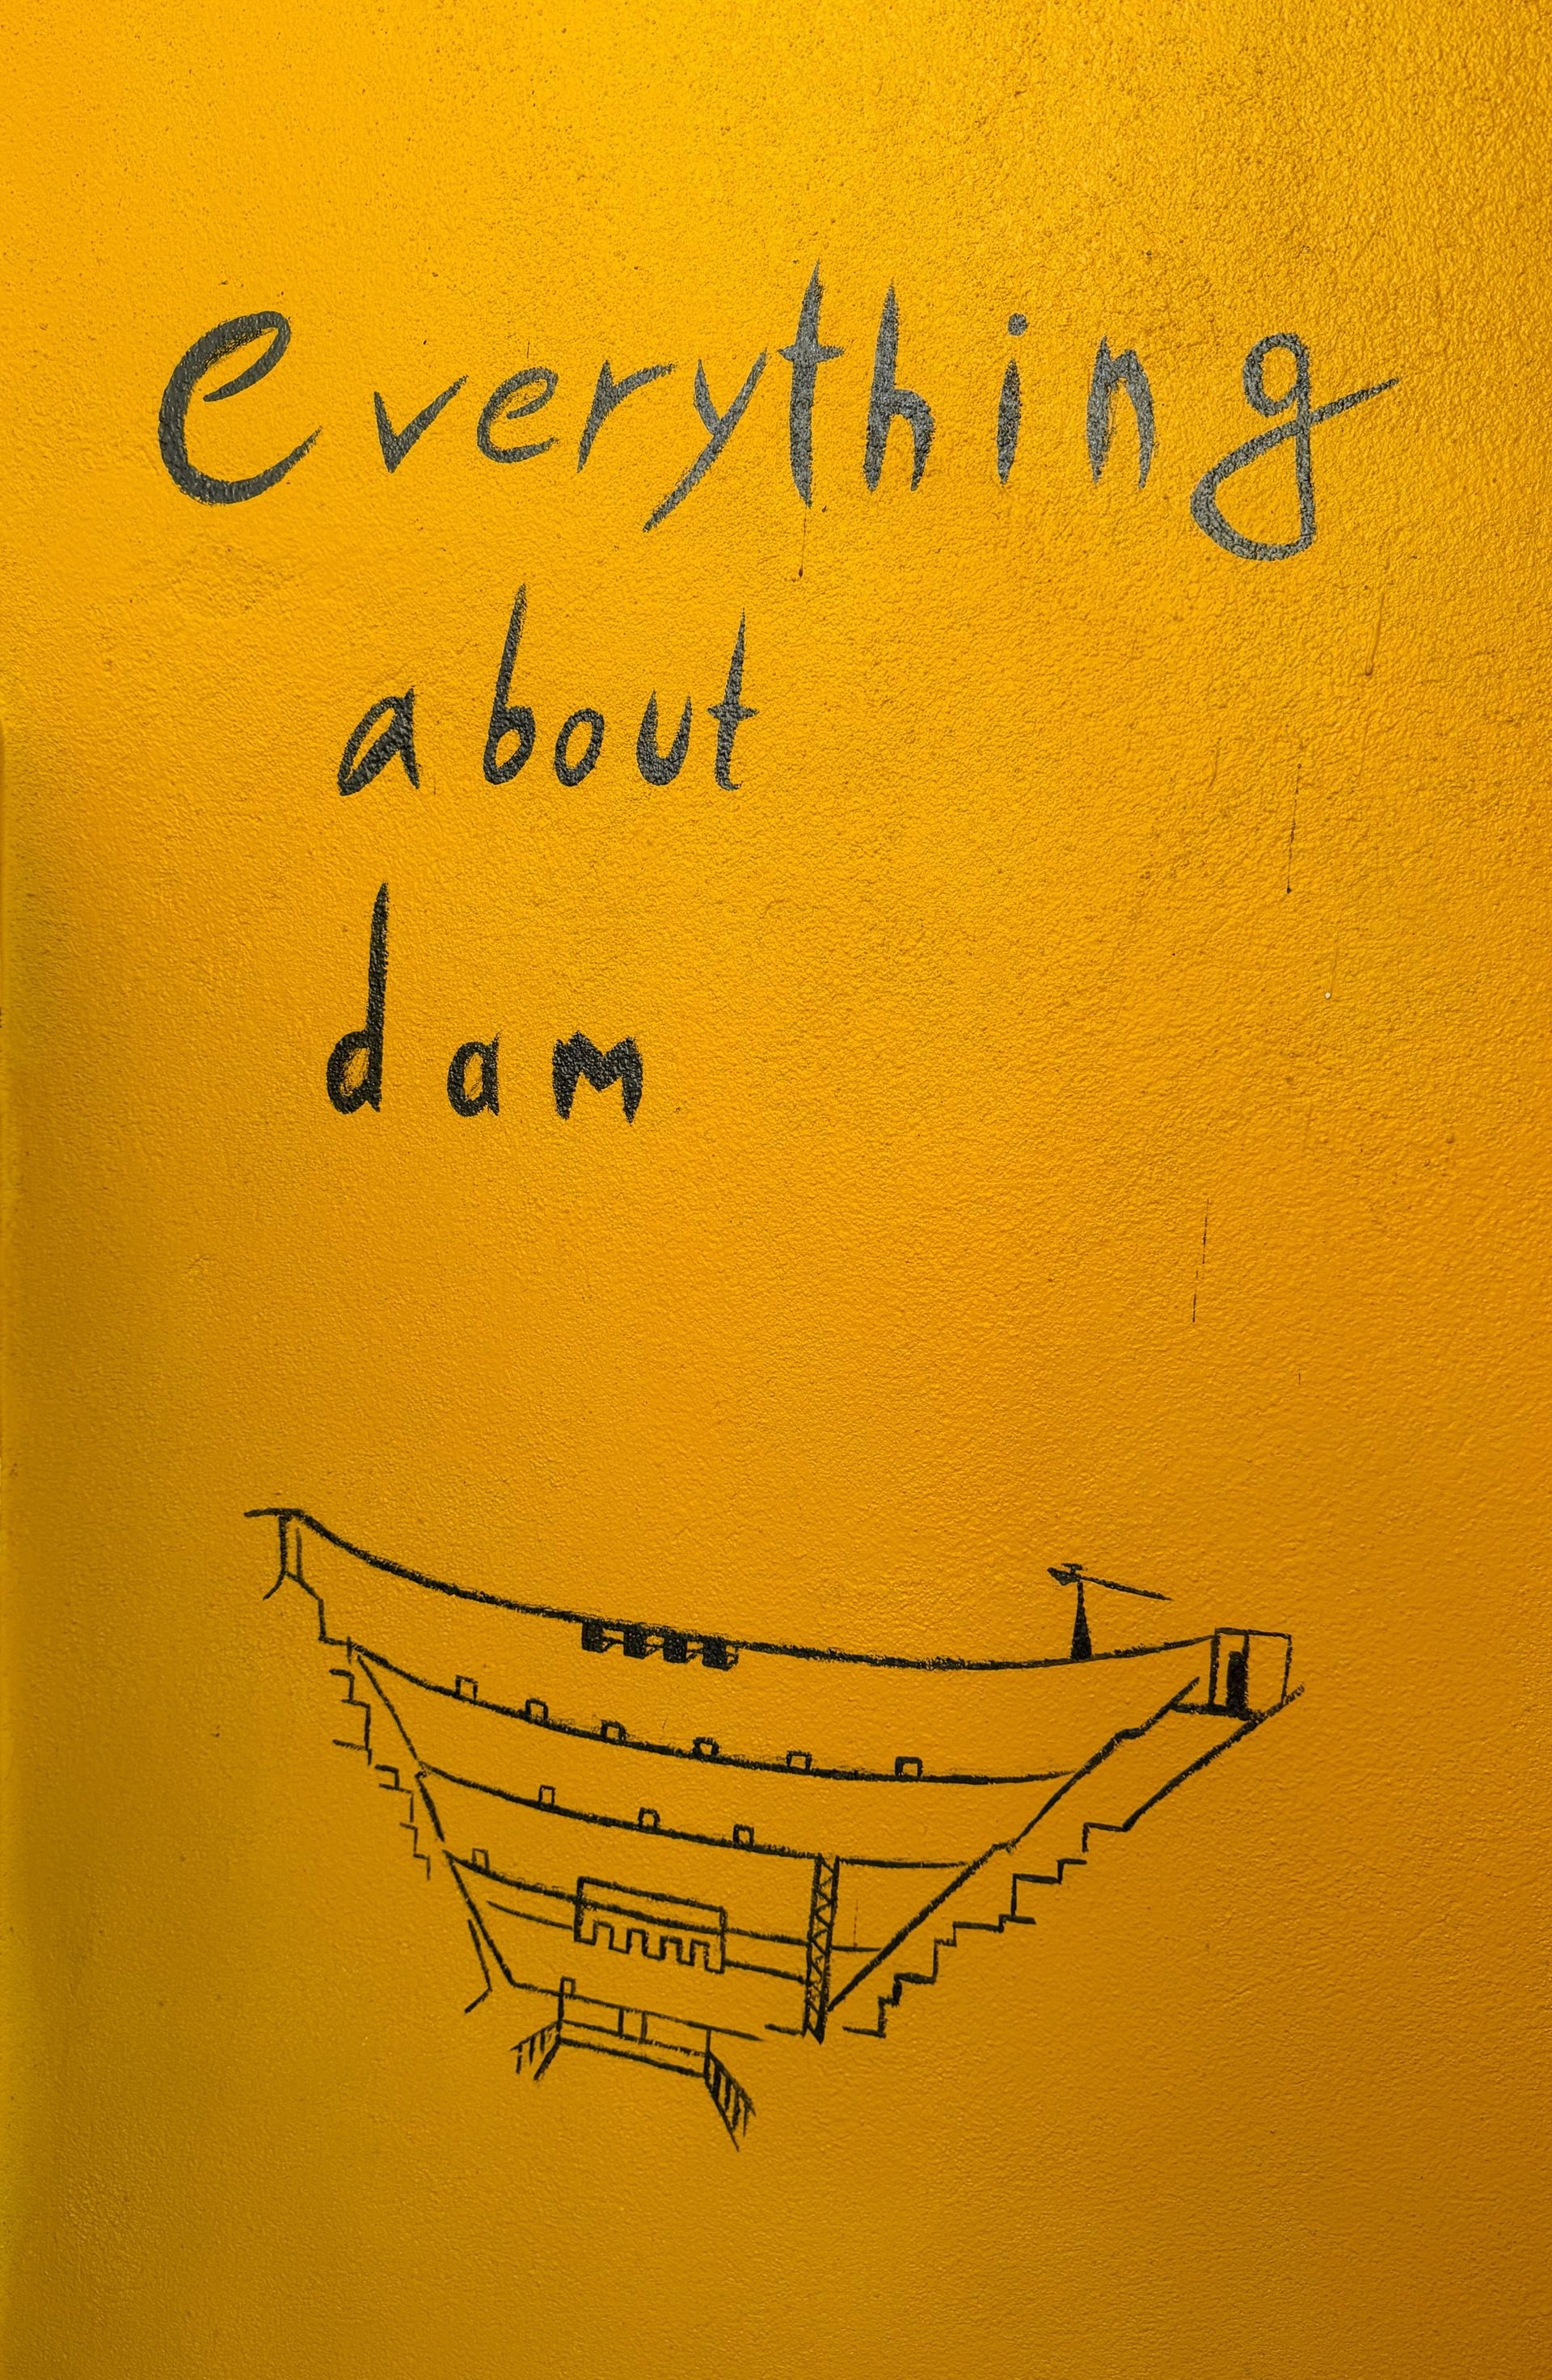 everything
about
dam